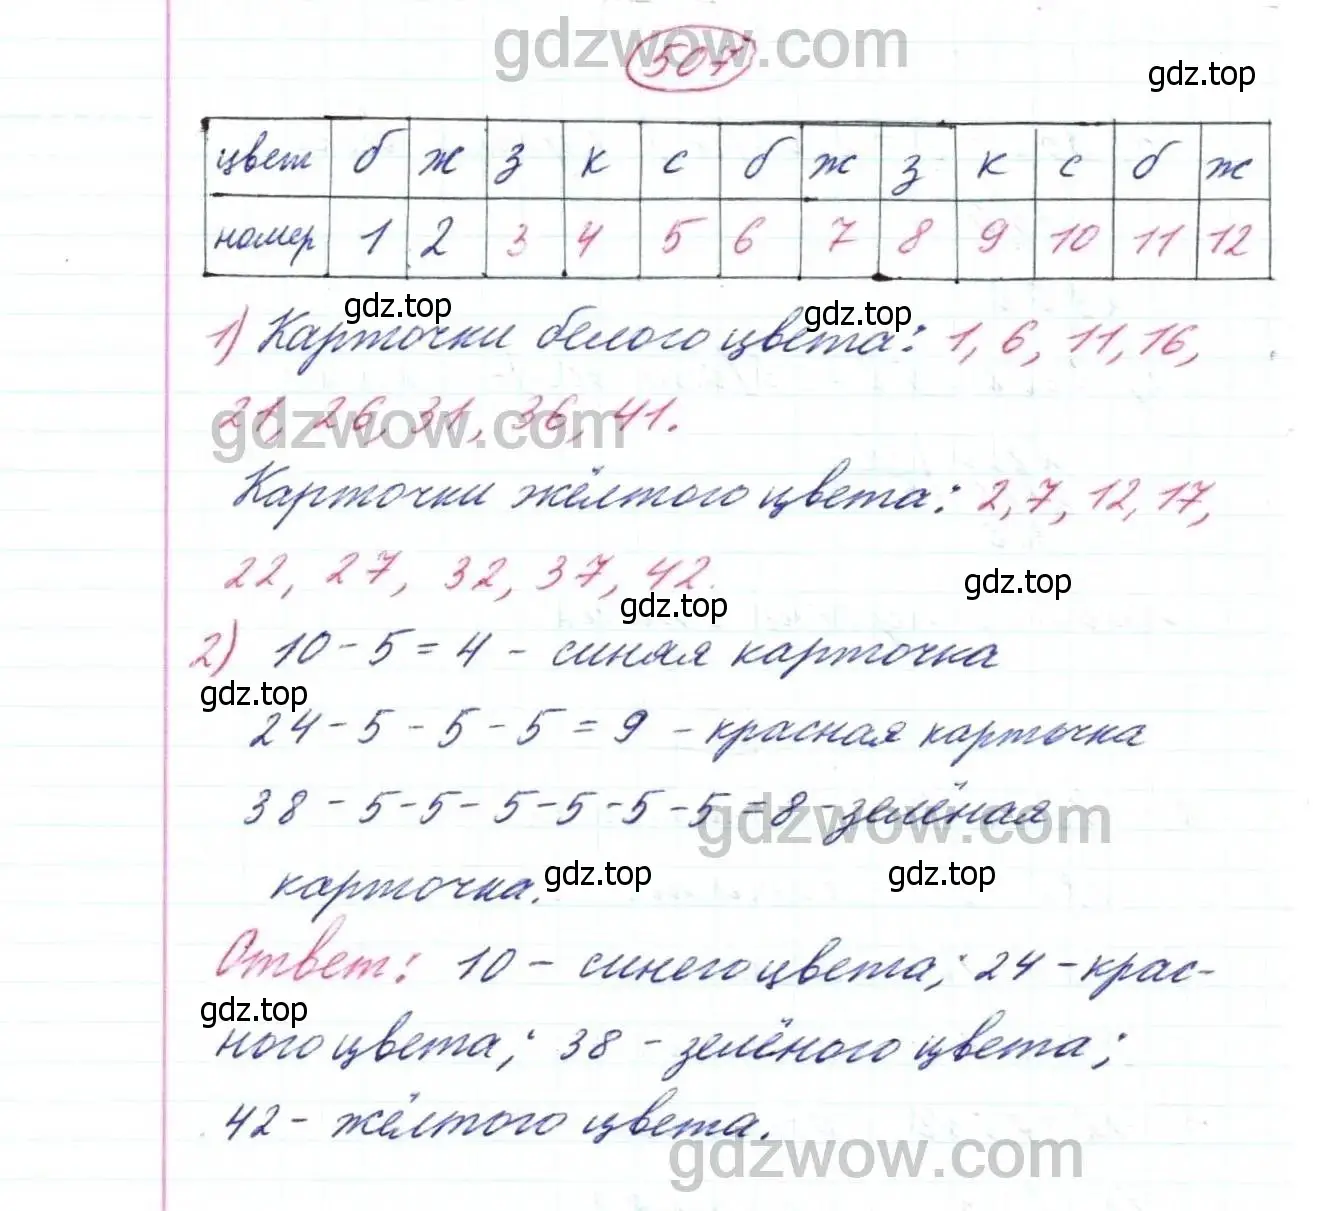 gdzwow.com
507
gdz.top
цвет б ж з к с б ж з к с б ж
номер 1 2 3 4 5 6 7 8 9 10 11 12
gdz.top
gdz.top
1) Карточки белого цвета: 1, 6, 11, 16,
21, 26, 31, 36, 41.
gdzwow.com
Карточки жёлтого цвета: 2, 7, 12, 17,
22, 27, 32, 37, 42.
gdz.top
gdz.top
2) 10 - 5 = 4 - синяя карточка
gdz.top
24 - 5 - 5 - 5 = 9 - красная карточка
38 - 5 - 5 - 5 - 5 - 5 - 5 = 8 - зелёная
gdzwow.com
карточка.
gdz.top
gdz.top
Ответ: 10 - синего цвета; 24 - крас-
gdz.top
ного цвета; 38 - зелёного цвета;
42 - жёлтого цвета.
gdzwow.com